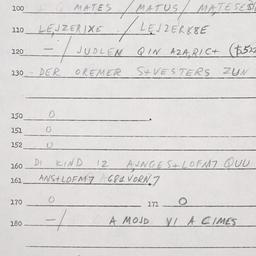 100 G MATES / MATUS / MATESES
110 LEJZERIXE / LEJZERKSE
120 — / JUDLEN QIN AZA,RICT (
130 DER OREMER S+VESTERS ZUN
150 0
151 0
152 0
160 DI KIND IZ AJNGES+LOFM7 QUU
161 ANS+LOFM7 VORN,7
170 0 171 0
180 —/ A MOJD VI A CIMES